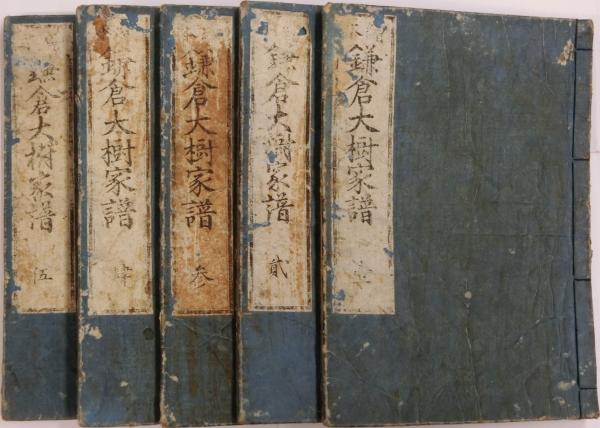 鎌倉大樹家譜 壹
鎌倉大樹家譜 貳
鎌倉大樹家譜 参
鎌倉大樹家譜 肆
鎌倉大樹家譜 伍